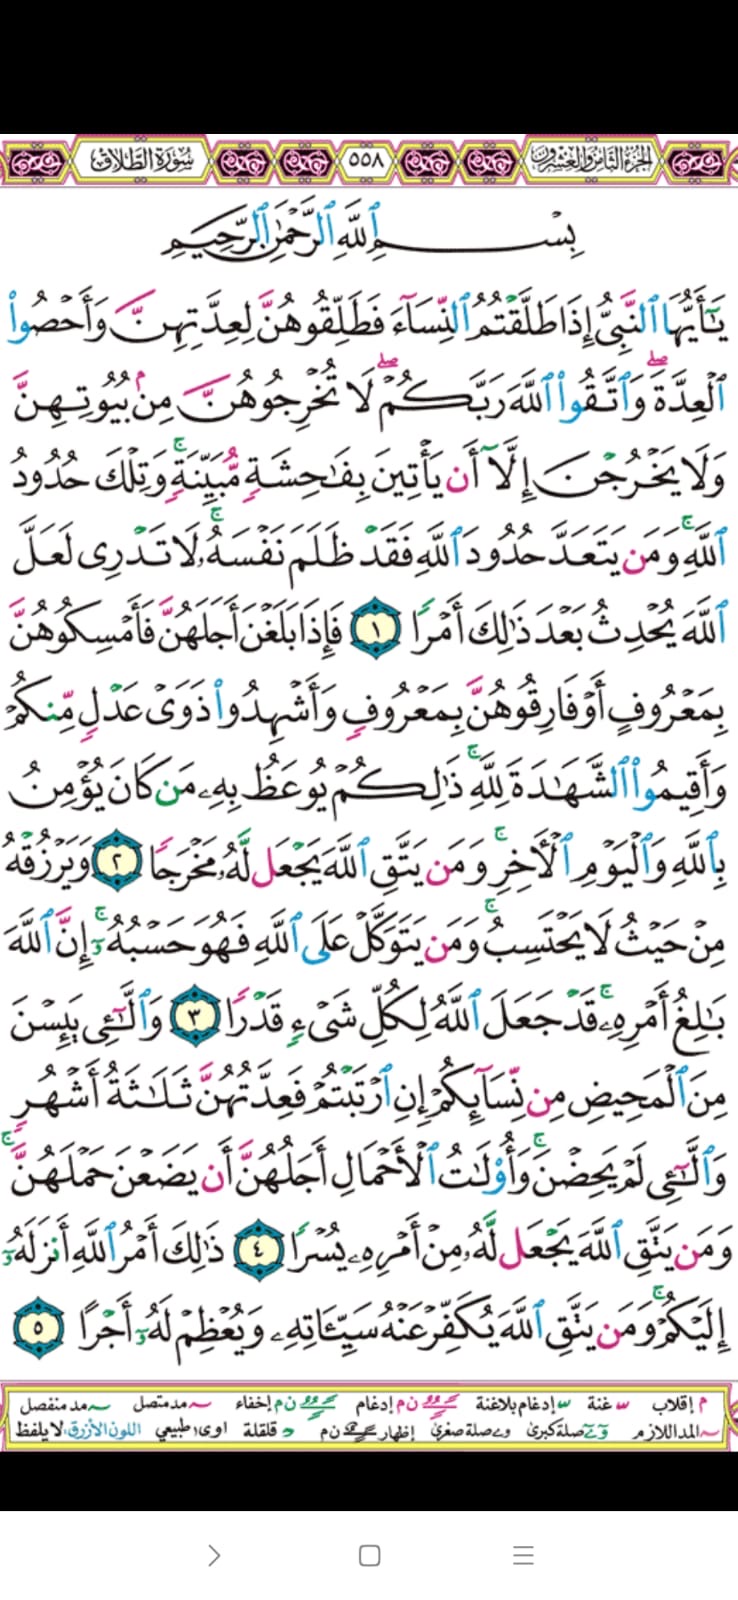 الجزء الثامن والعشرون ٥٥٨ سورة الطلاق
بِسْمِ ٱللَّهِ ٱلرَّحْمَٰنِ ٱلرَّحِيمِ
يَٰٓأَيُّهَا ٱلنَّبِىُّ إِذَا طَلَّقْتُمُ ٱلنِّسَآءَ فَطَلِّقُوهُنَّ لِعِدَّتِهِنَّ وَأَحْصُوا۟
ٱلْعِدَّةَ ۖ وَٱتَّقُوا۟ ٱللَّهَ رَبَّكُمْ ۖ لَا تُخْرِجُوهُنَّ مِنۢ بُيُوتِهِنَّ
وَلَا يَخْرُجْنَ إِلَّآ أَن يَأْتِينَ بِفَٰحِشَةٍ مُّبَيِّنَةٍ ۚ وَتِلْكَ حُدُودُ
ٱللَّهِ ۚ وَمَن يَتَعَدَّ حُدُودَ ٱللَّهِ فَقَدْ ظَلَمَ نَفْسَهُۥ ۚ لَا تَدْرِى لَعَلَّ
ٱللَّهَ يُحْدِثُ بَعْدَ ذَٰلِكَ أَمْرًا ١ فَإِذَا بَلَغْنَ أَجَلَهُنَّ فَأَمْسِكُوهُنَّ
بِمَعْرُوفٍ أَوْ فَارِقُوهُنَّ بِمَعْرُوفٍ وَأَشْهِدُوا۟ ذَوَىْ عَدْلٍ مِّنكُمْ
وَأَقِيمُوا۟ ٱلشَّهَٰدَةَ لِلَّهِ ۚ ذَٰلِكُمْ يُوعَظُ بِهِۦ مَن كَانَ يُؤْمِنُ
بِٱللَّهِ وَٱلْيَوْمِ ٱلْأَخِرِ ۚ وَمَن يَتَّقِ ٱللَّهَ يَجْعَل لَّهُۥ مَخْرَجًا ٢ وَيَرْزُقْهُ
مِنْ حَيْثُ لَا يَحْتَسِبُ ۚ وَمَن يَتَوَكَّلْ عَلَى ٱللَّهِ فَهُوَ حَسْبُهُۥٓ ۚ إِنَّ ٱللَّهَ
بَٰلِغُ أَمْرِهِۦ ۚ قَدْ جَعَلَ ٱللَّهُ لِكُلِّ شَىْءٍ قَدْرًا ٣ وَٱلَّٰٓـِٔى يَئِسْنَ
مِنَ ٱلْمَحِيضِ مِن نِّسَآئِكُمْ إِنِ ٱرْتَبْتُمْ فَعِدَّتُهُنَّ ثَلَٰثَةُ أَشْهُرٍ
وَٱلَّٰٓـِٔى لَمْ يَحِضْنَ ۚ وَأُو۟لَٰتُ ٱلْأَحْمَالِ أَجَلُهُنَّ أَن يَضَعْنَ حَمْلَهُنَّ ۚ
وَمَن يَتَّقِ ٱللَّهَ يَجْعَل لَّهُۥ مِنْ أَمْرِهِۦ يُسْرًا ٤ ذَٰلِكَ أَمْرُ ٱللَّهِ أَنزَلَهُۥٓ
إِلَيْكُمْ ۚ وَمَن يَتَّقِ ٱللَّهَ يُكَفِّرْ عَنْهُ سَيِّـَٔاتِهِۦ وَيُعْظِمْ لَهُۥٓ أَجْرًا ٥
م إقلاب غنة إدغام بلاغنة ن م إدغام ن م إخفاء مد متصل مد منفصل
المد اللازم صلة كبرى صلة صغرى إظهار ن م قلقلة اوى طبيعي اللون الأزرق لا يلفظ